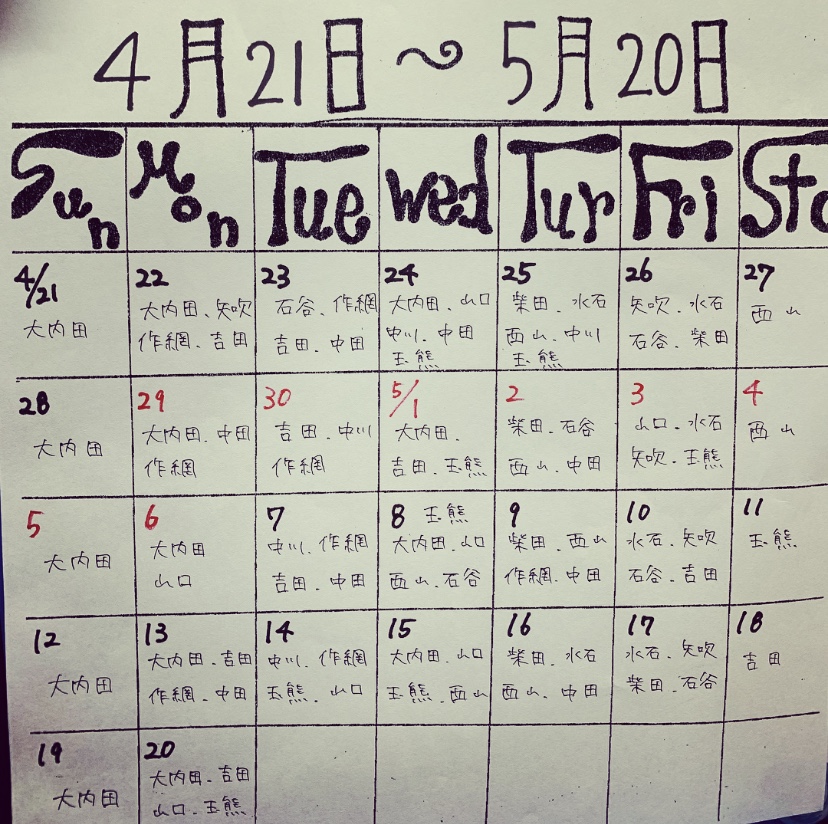 4月21日～5月20日
Sun Mon Tue Wed Tur Fri Sta
4/21 22 23 24 25 26 27
大内田 大内田、矢吹 石谷、作網 大内田、山口 柴田、水石 矢吹、水石 西山
作網、吉田 吉田、中田 中川、中田 西山、中川 石谷、柴田
玉熊 玉熊
28 29 30 5/1 2 3 4
大内田 大内田、中田 吉田、中川 大内田、 柴田、石谷 山口、水石 西山
作網 作網 吉田、玉熊 西山、中田 矢吹、玉熊
5 6 7 8 玉熊 9 10 11
大内田 大内田 中川、作網 大内田、山口 柴田、西山 水石、矢吹 玉熊
山口 吉田、中田 西山、石谷 作網、中田 石谷、吉田
12 13 14 15 16 17 18
大内田 大内田、吉田 中川、作網 大内田、山口 柴田、水石 水石、矢吹 吉田
作網、中田 玉熊、山口 玉熊、西山 西山、中田 柴田、石谷
19 20
大内田 大内田、吉田
山口、玉熊